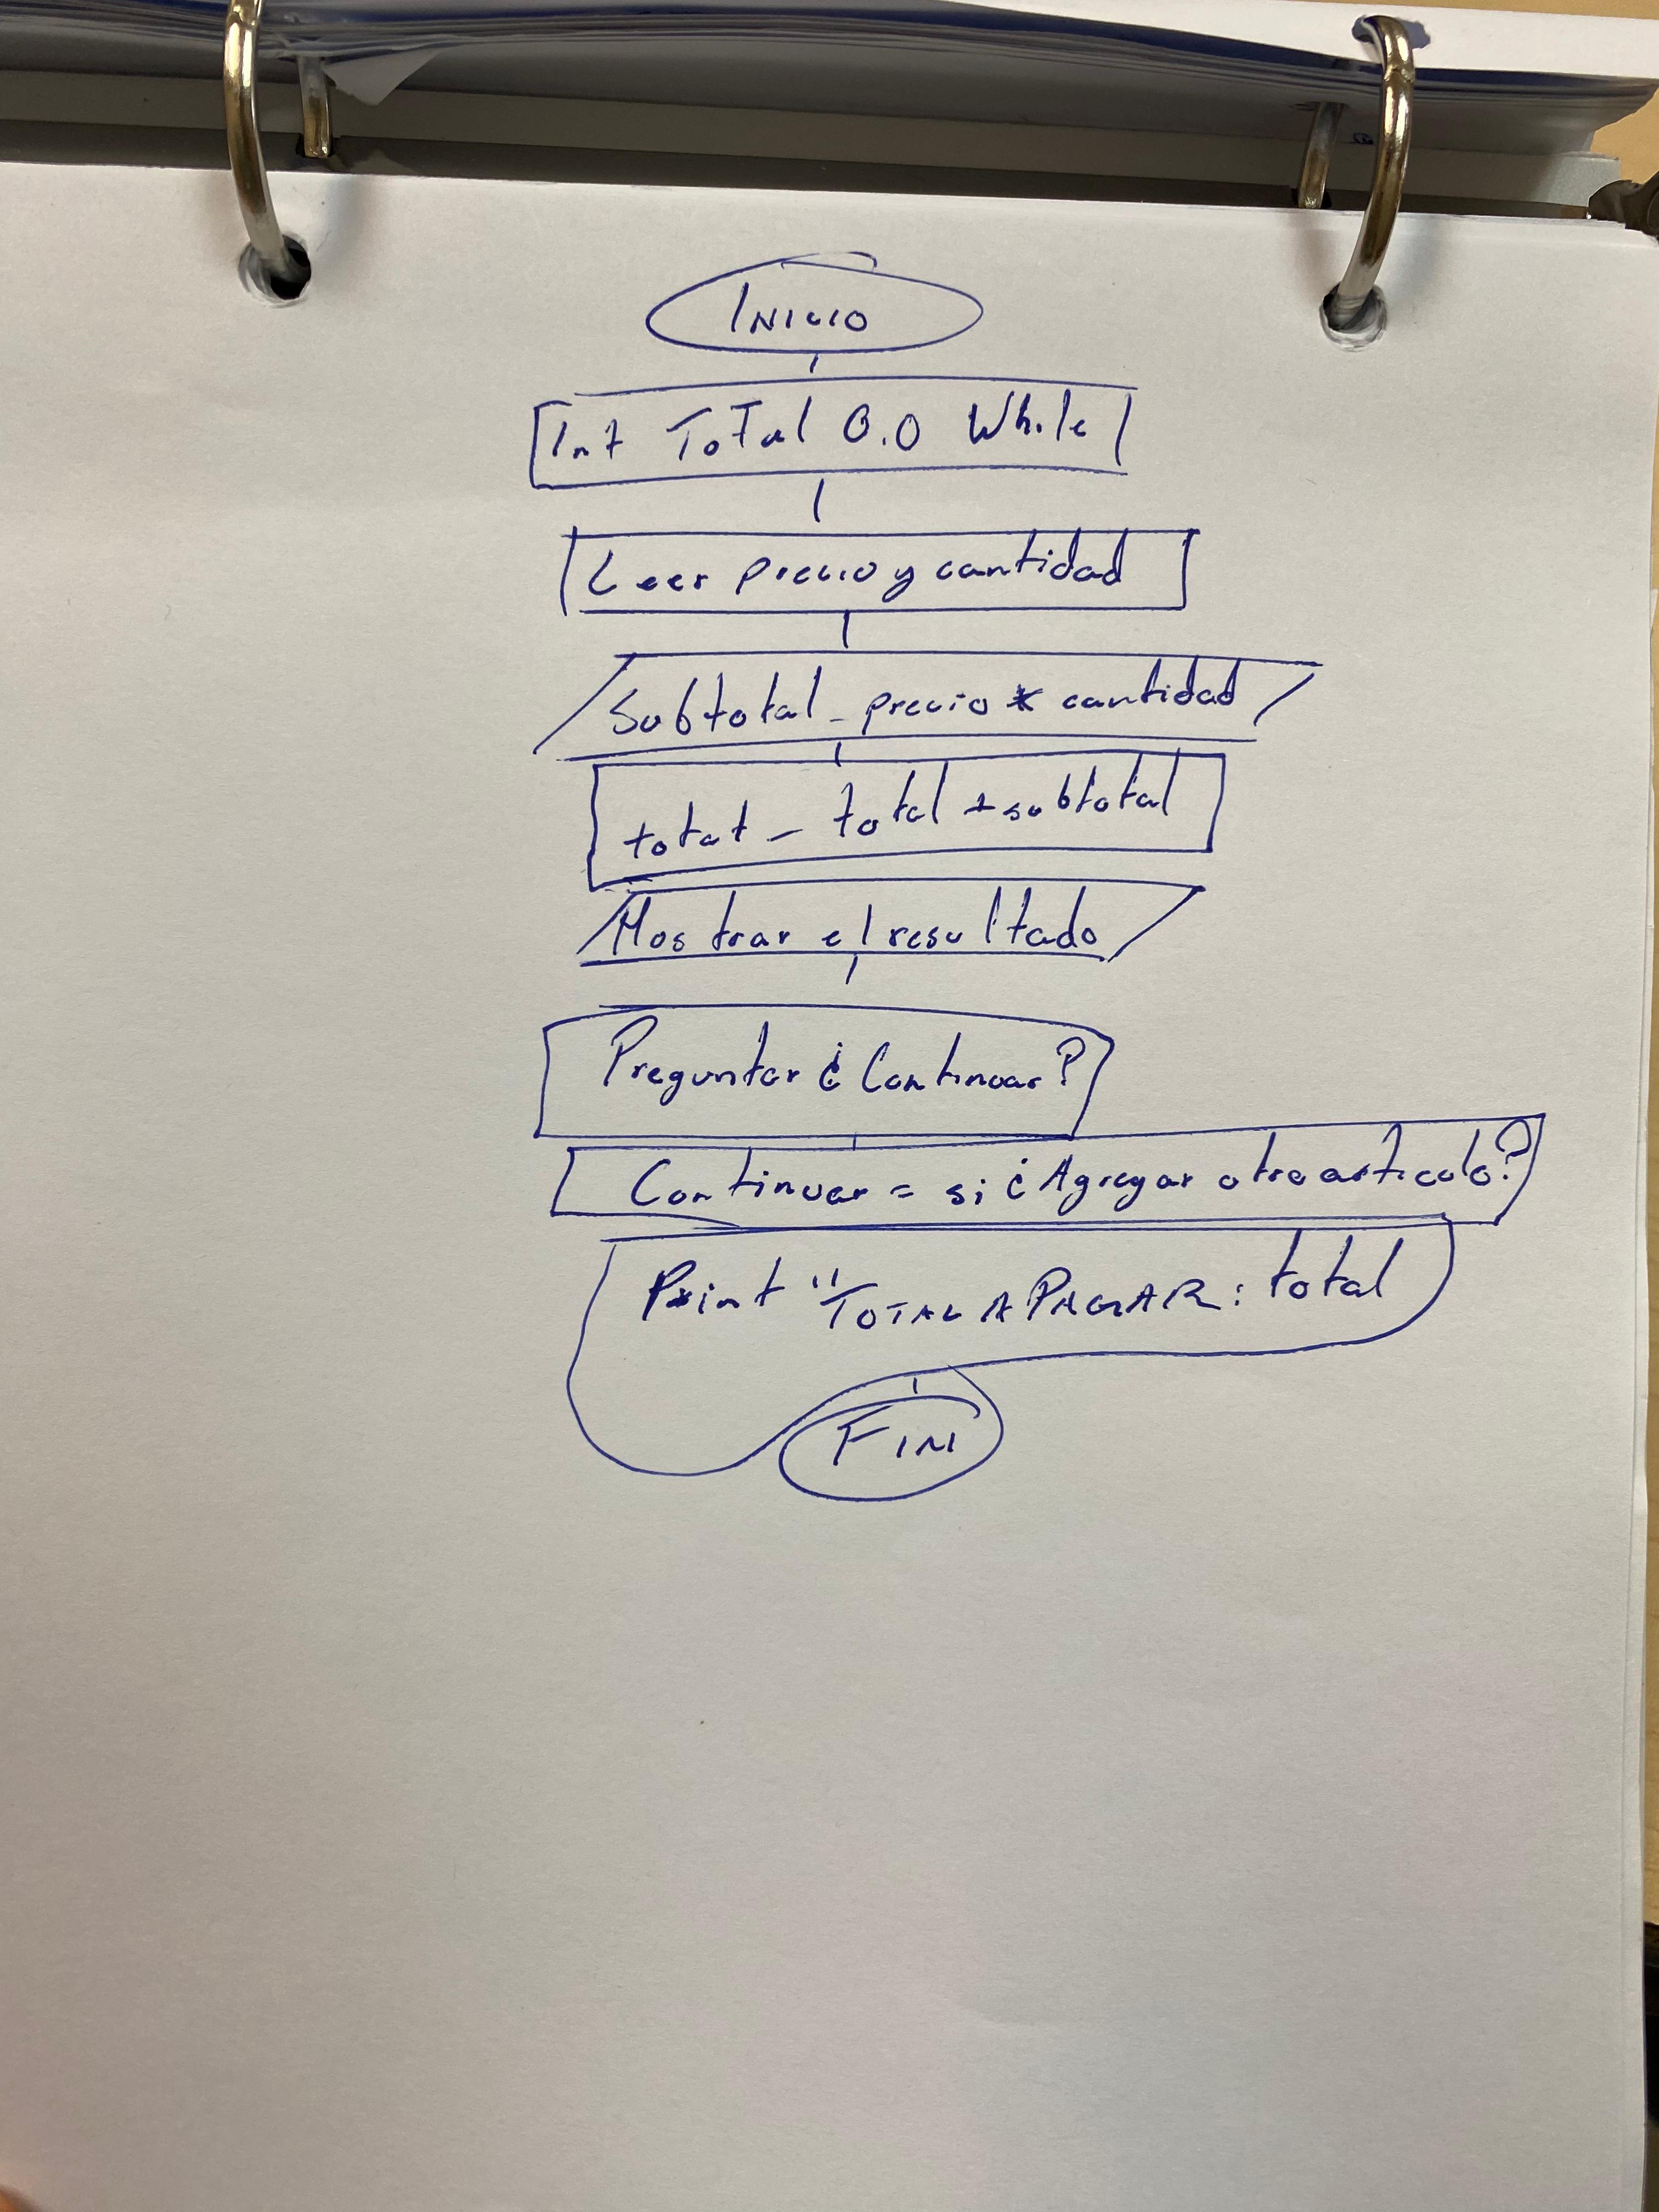 INICIO
Int Total 0.0 While
Leer precio y cantidad
Subtotal - precio * cantidad
total - total + subtotal
Mostrar el resultado
Preguntar ¿Continuar?
Continuar = si ¿Agregar otro articulo?
Print "TOTAL A PAGAR: total
FIN